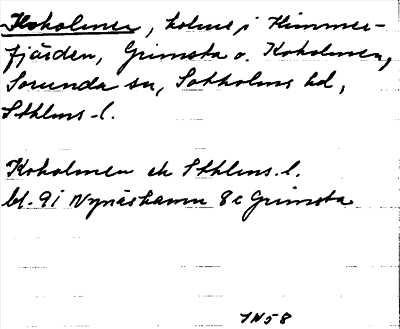 Koholmen, holme i Himmer-
fjärden, Grimsta o. Koholmen,
Sorunda sn, Sotholms hd,
Sthlms l.
Koholmen ek Sthlms. l.
bl. 9i Nynäshamn 8c Grimsta
1N58